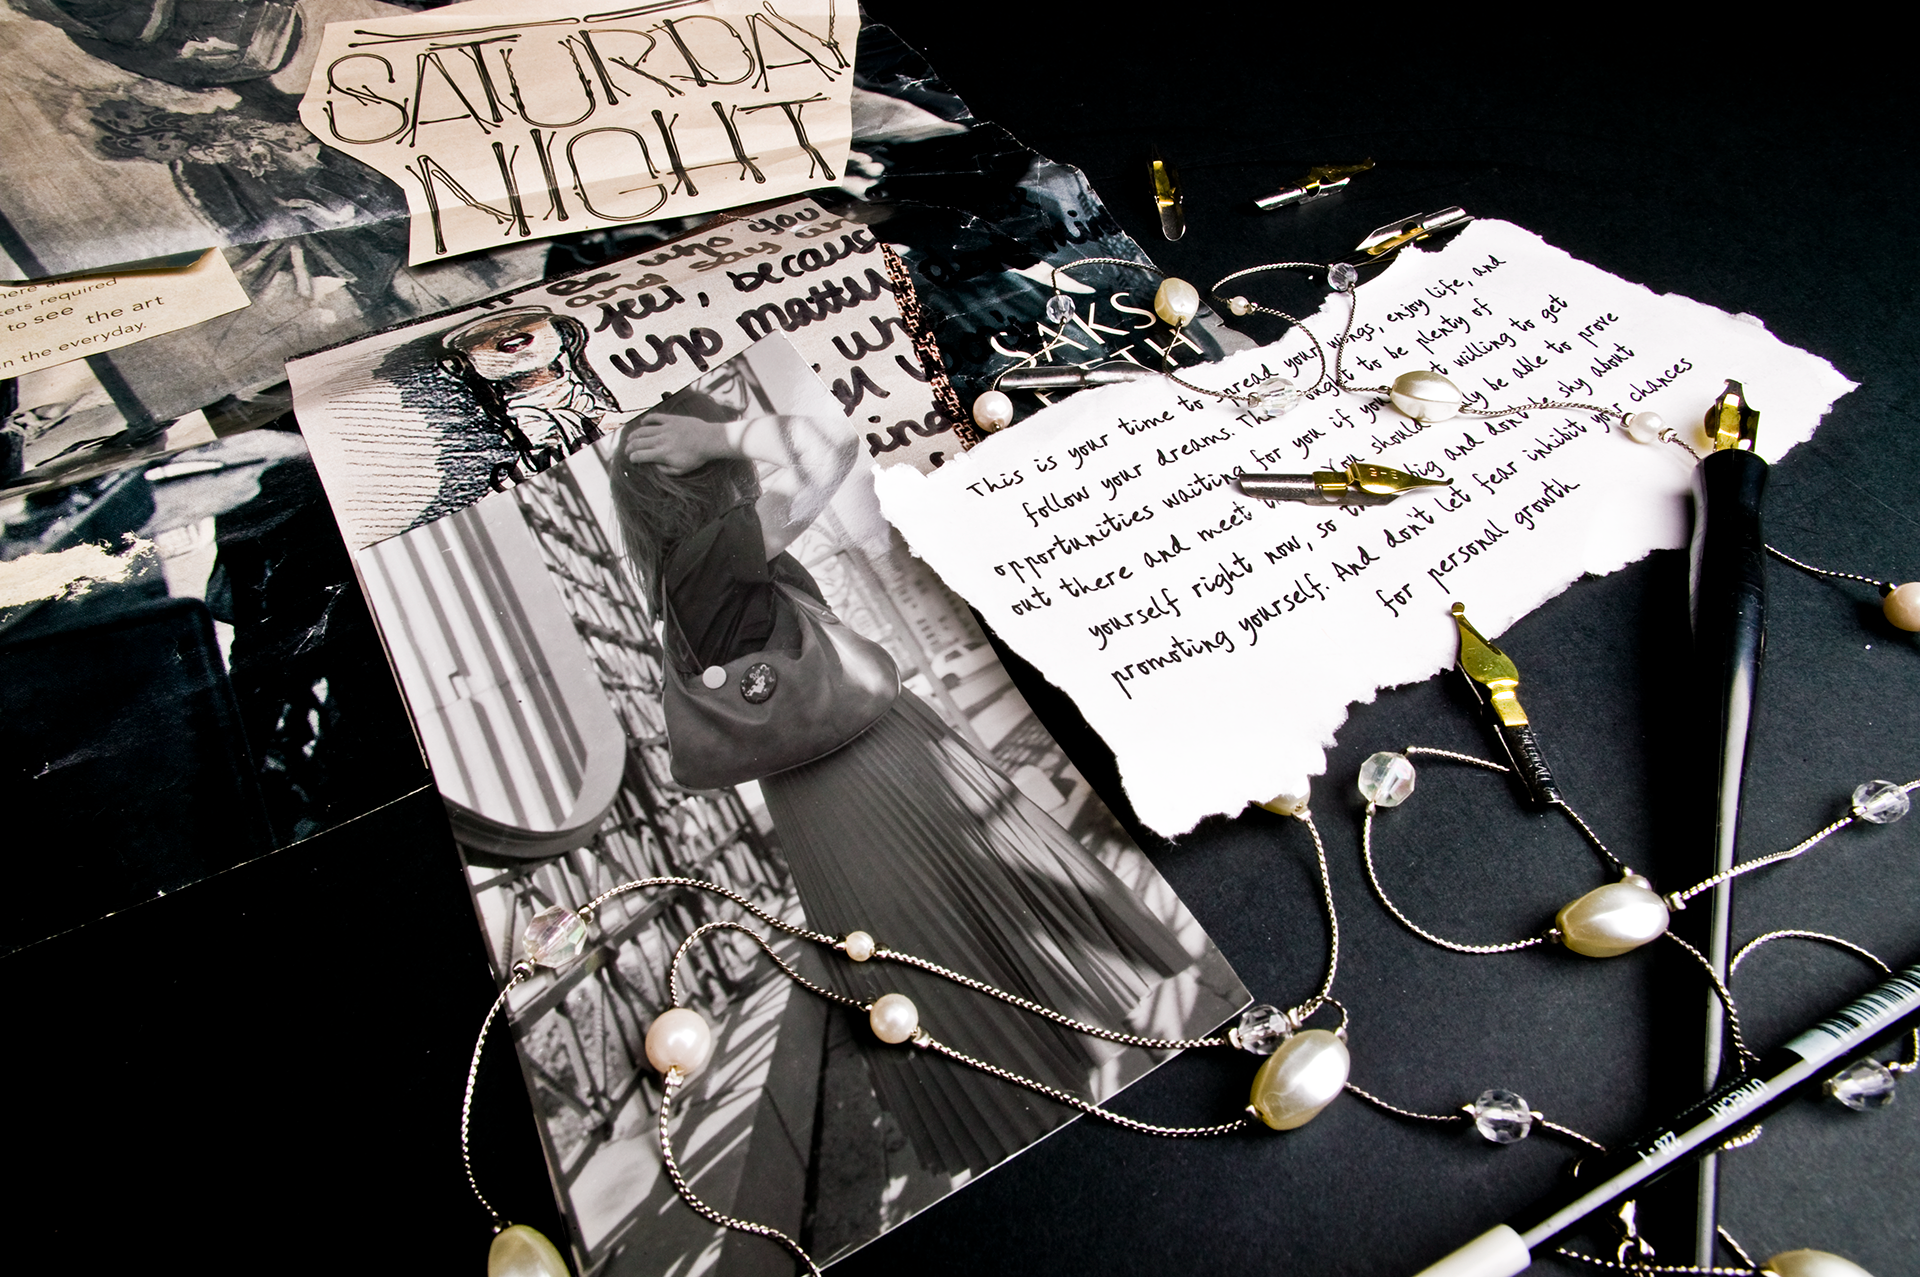 SATURDAY
NIGHT
kets required
to see the art
in the everyday.
Be who you
and say
feel, because
who matter
mind
SAKS
This is your time to spread your wings, enjoy life, and
follow your dreams. ought to be plenty of
opportunities waiting for you if you willing to get
out there and meet You should be able to prove
yourself right now, so big and don't be shy about
promoting yourself. And don't let fear inhibit your chances
for personal growth
UTRECHT
228-1